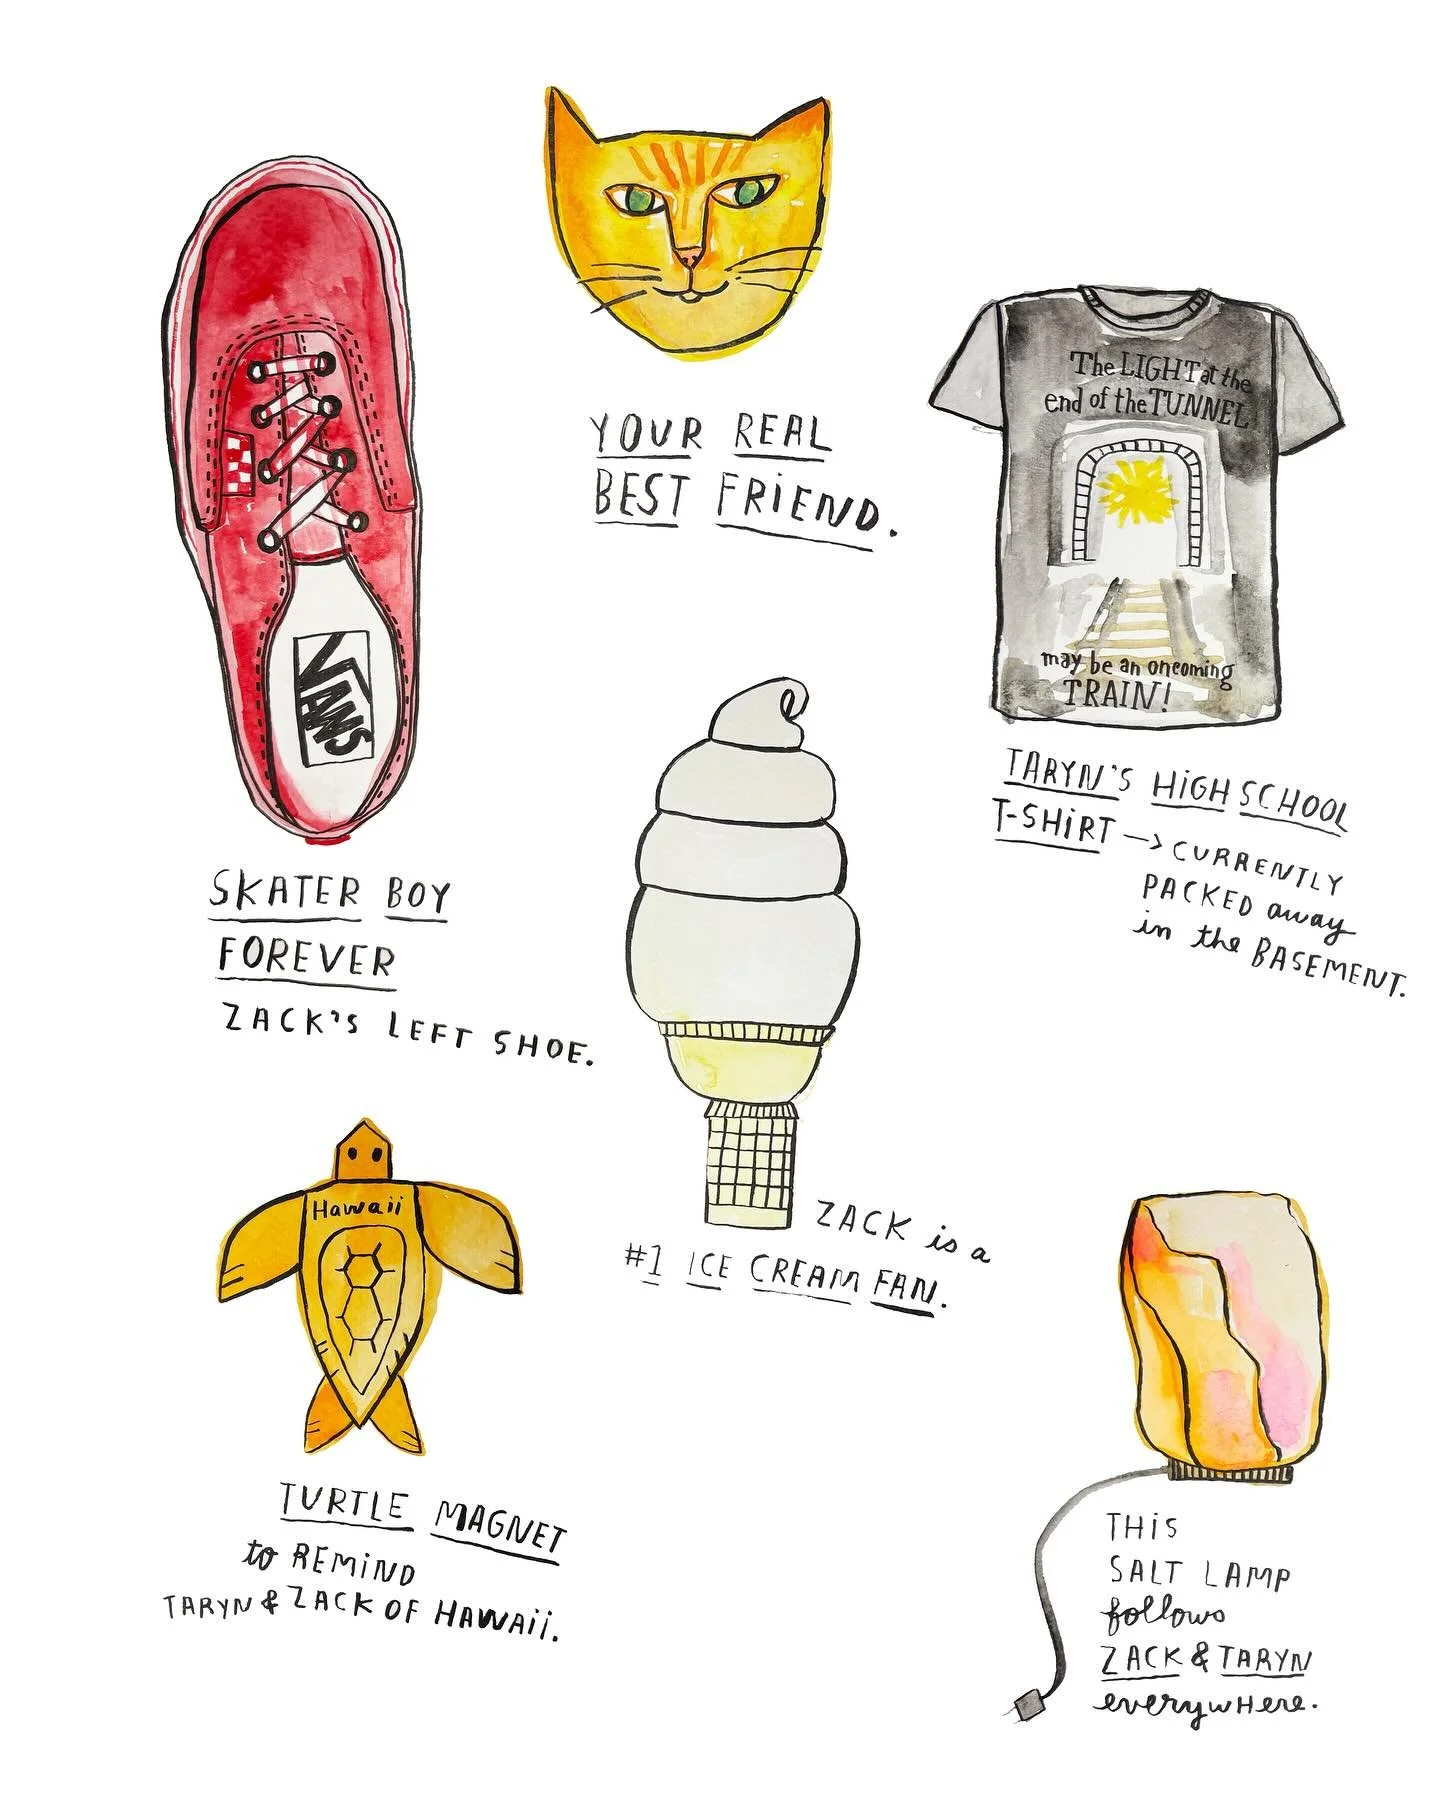 YOUR REAL
BEST FRiEND.
The LIGHT at the
end of the TUNNEL
may be an oncoming
TRAIN!
TARYN'S HiGH SCHOOL
T-SHiRT → CURRENTLY
PACKED away
in the BASEMENT.
VANS
SKATER BOY
FOREVER
ZACK'S LEFT SHOE.
ZACK is a
#1 ICE CREAM FAN.
Hawaii
TURTLE MAGNET
to REMiND
TARYN & ZACK OF HAWAii.
THiS
SALT LAMP
follows
ZACK & TARYN
everywHere.